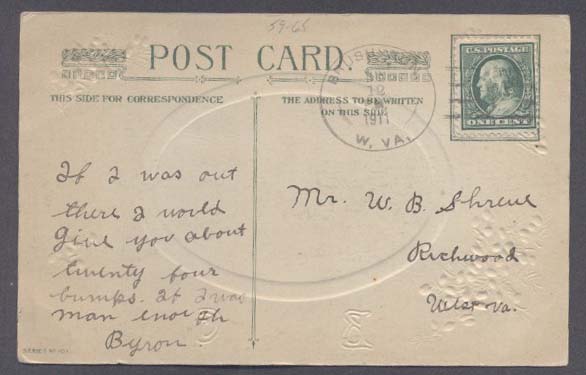 59-65
POST CARD
THIS SIDE FOR CORRESPONDENCE
THE ADDRESS TO BE WRITTEN
ON THIS SIDE
1911
W. VA.
U.S. POSTAGE
ONE CENT
If I was out
there I would
give you about
twenty four
bumps. If I was
man enough
Byron.
Mr. W. B. Shreve
Richwood
West Va.